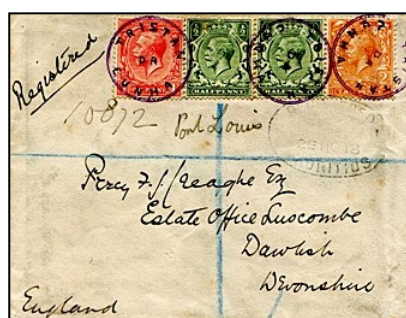 TRISTAN DA CUNHA
HALFPENNY
HALFPENNY
Registered
10872 Port Louis
MAURITIUS
Percy F. J. Creaghe Esq
Estate Office Luscombe
Dawlish
Devonshire
England